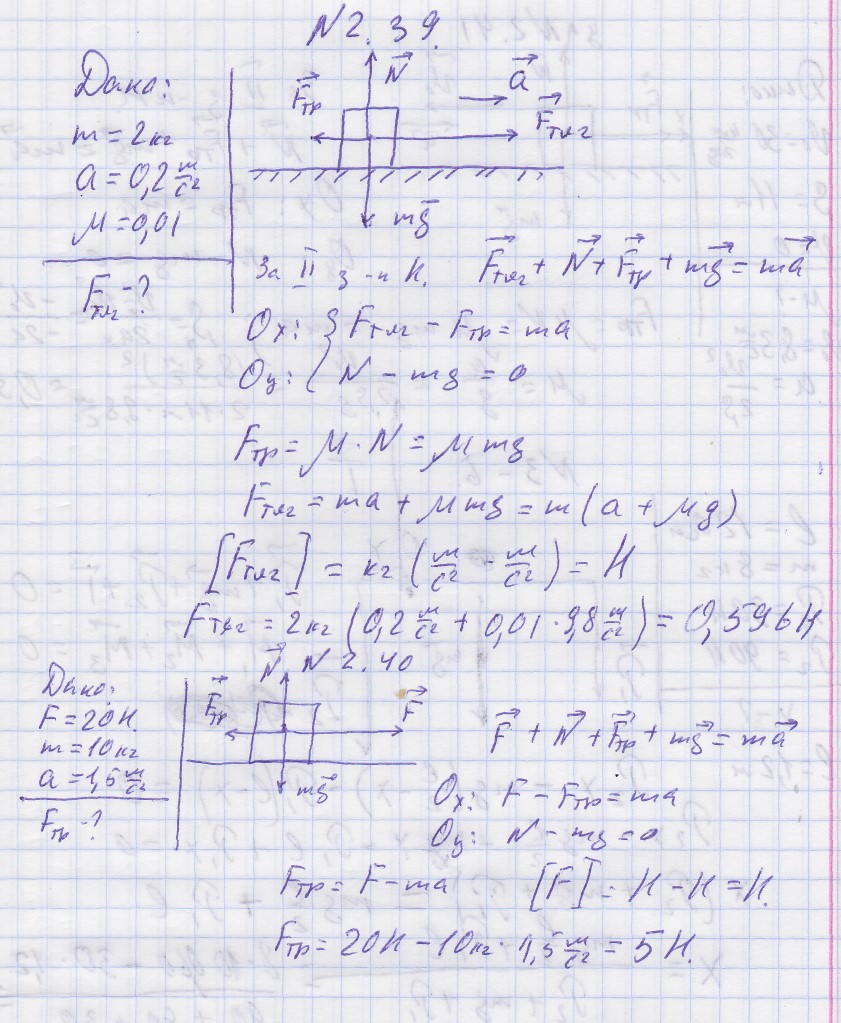 N 2. 39.
Дано:
m = 2кг
a = 0,2 м/с²
μ = 0,01
Fтяг - ?
N
Fтр
a
Fтяг
mg
За II з-н Н. Fтяг + N + Fтр + mg = ma
Ox: { Fтяг - Fтр = ma
Oy: { N - mg = 0
Fтр = μ · N = μmg
Fтяг = ma + μmg = m(a + μg)
[Fтяг] = кг (м/с² - м/с²) = Н
Fтяг = 2кг (0,2 м/с² + 0,01 · 9,8 м/с²) = 0,596Н
N 2. 40
Дано:
F = 20Н.
m = 10кг
a = 1,5 м/с²
Fтр - ?
N
Fтр
F
mg
F + N + Fтр + mg = ma
Ox: F - Fтр = ma
Oy: N - mg = 0
Fтр = F - ma [F] = Н - Н = Н.
Fтр = 20Н - 10кг · 1,5 м/с² = 5Н.